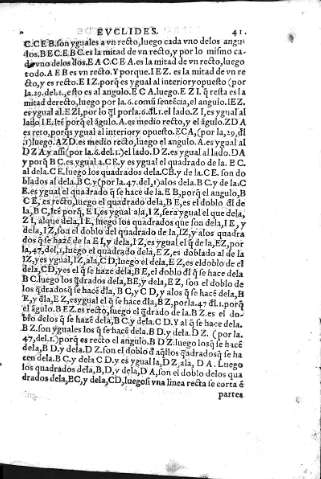 EVCLIDES. 41.
C.C E B. son yguales a vn recto, luego cada vno delos angu
dos. B E C. E B C. es la mitad de vn recto, y por lo mismo ca
da vno delos dos. E A C. C E A. es la mitad de vn recto, luego
todo. A E B es vn recto. Y porque. I E Z. es la mitad de vn re
cto, y es recto. E I Z. porq̃ es ygual al interior y opuesto (por
la. 29. del. 1., esto es al angulo. E C A, luego. E Z I. q̃ resta es la
mitad de recto, luego por la. 6. comũ sentẽcia, el angulo. I E Z.
es ygual al. E Z I, por lo q̃l por la. 6. dl. 1. el lado. Z I, es ygual al
lado I E. Itẽ porq̃ el ãgulo. A. es medio recto, y el ãgulo. Z D A
es reto, porq̃ es ygual al interior y opuesto. E C A, (por la, 29, dl
,1) luego. A Z D. es medio recto, luego el angulo. A. es ygual al
D Z A. y assi (por la. 6. del. 1.) el lado. D Z. es ygual al lado. D A
y porq̃ B C. es ygual a. C E, y es ygual el quadrado de la. B C.
al dela. C E. luego los quadrados dela. C B. y de la. C E. son do
blados al dela. B C. y (por la. 47. del. 1) alos dela. B C. y de la. C
E. es ygual el quadrado q̃ se haze de la. E B, porq̃ el angulo, B
C E, es recto, luego el quadrado dela, B E, es el doblo dl̃ de
la, B C,
Z I, alque dela, I E, luego los quadrados que son dela, I E, y
dela, I Z, son el doblo del quadrado de la, I Z, y alos quadra
dos q̃ se hazẽ de la E I, y dela, I Z, es ygual el q̃ de la, E Z, por
la, 47, del, 1, luego el quadrado dela, E Z, es doblado al de la
I Z, y es ygual, I Z, ala, C D, luego el dela, E Z, es el doblo de el
dela, C D, y es el q̃ se haze dela, B E, el doblo dl̃ q̃ se hace dela
B C. luego los q̃drados dela, B E, y dela, E Z, son el doblo de
los q̃drados q̃ se hacẽ dl̃a, B C, y C D, y alos q̃ se hacẽ dela, B
E, y dl̃a, E Z, es ygual el q̃ se hace dl̃a, B Z, por la. 47 dl. 1. porq̃
el ãgulo. B E Z. es recto, luego el q̃drado de la. B Z. es el do-
blo delos q̃ se hazẽ dela, B C. y dela. C D. Y al q̃ se hace dela.
B Z. son yguales los q̃ se hacẽ dela. B D. y dela. D Z. (por la.
47, del. 1.) porq̃ es recto el angulo. B D Z. luego los q̃ se hacẽ
dela, B D. y dela. D Z. son el doblo d̃ aq̃llos q̃drados q̃ se ha
cen dela. B C. y dela C D. y es ygual la, D Z, ala, D A. Luego
los quadrados dela, B, D, y dela, D A, son el doblo delos qua
drados dela, E C, y dela, C D, luego si vna linea recta se corta ẽ
partes